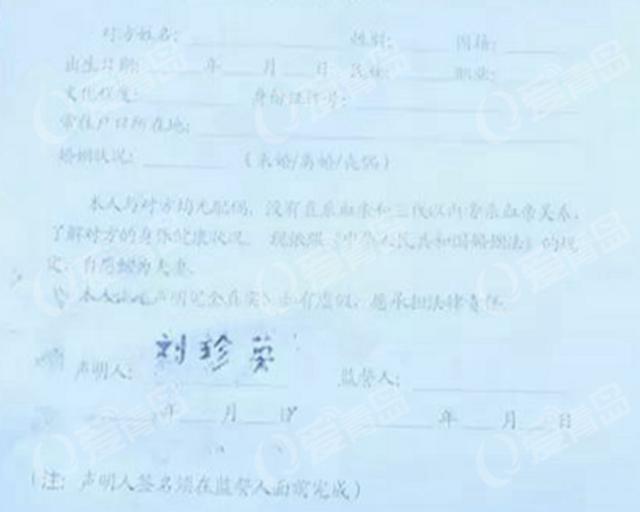 对方姓名: 性别: 国籍:
出生日期: 年 月 日 民族: 职业:
文化程度: 身份证件号:
常住户口所在地:
婚姻状况: (未婚/离婚/丧偶)
本人与对方均无配偶, 没有直系血亲和三代以内旁系血亲关系,
了解对方的身体健康状况。现依照《中华人民共和国婚姻法》的规
定, 自愿结为夫妻。
本人 声明完全真实, 如有虚假, 愿承担法律责任。
声明人: 刘珍英 监誓人:
年 月 日 年 月 日
(注: 声明人签名须在监誓人面前完成)
爱青岛